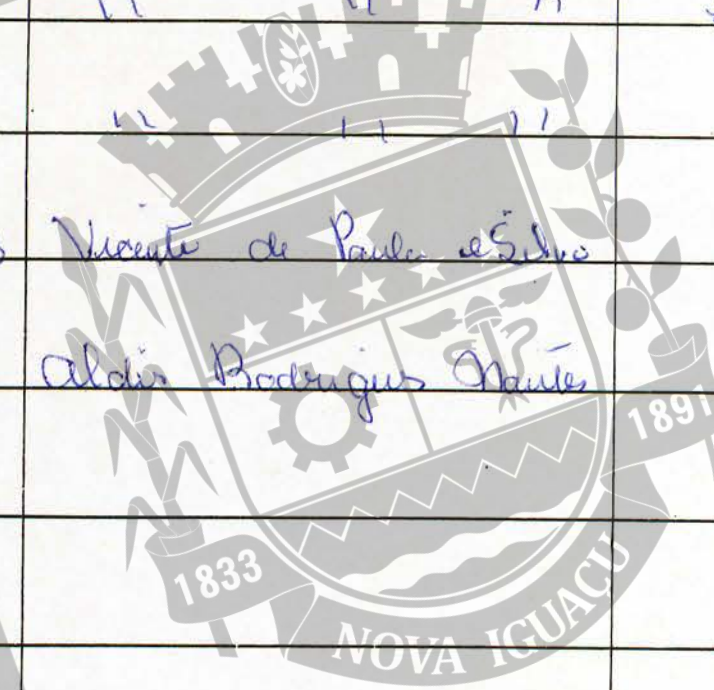 " " "
" " "
Vicente de Paula e Silva
Aldir Rodrigues Nantes
1891
1833
NOVA IGUAÇU